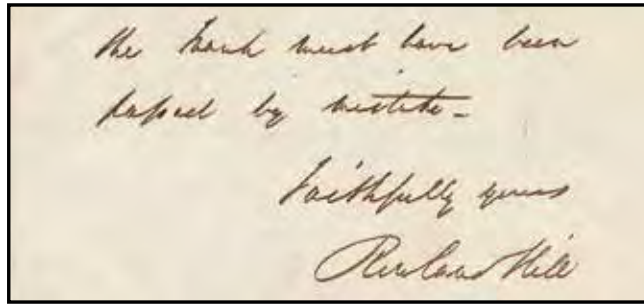 the Frank must have been
passed by mistake –
Faithfully yours
Rowland Hill